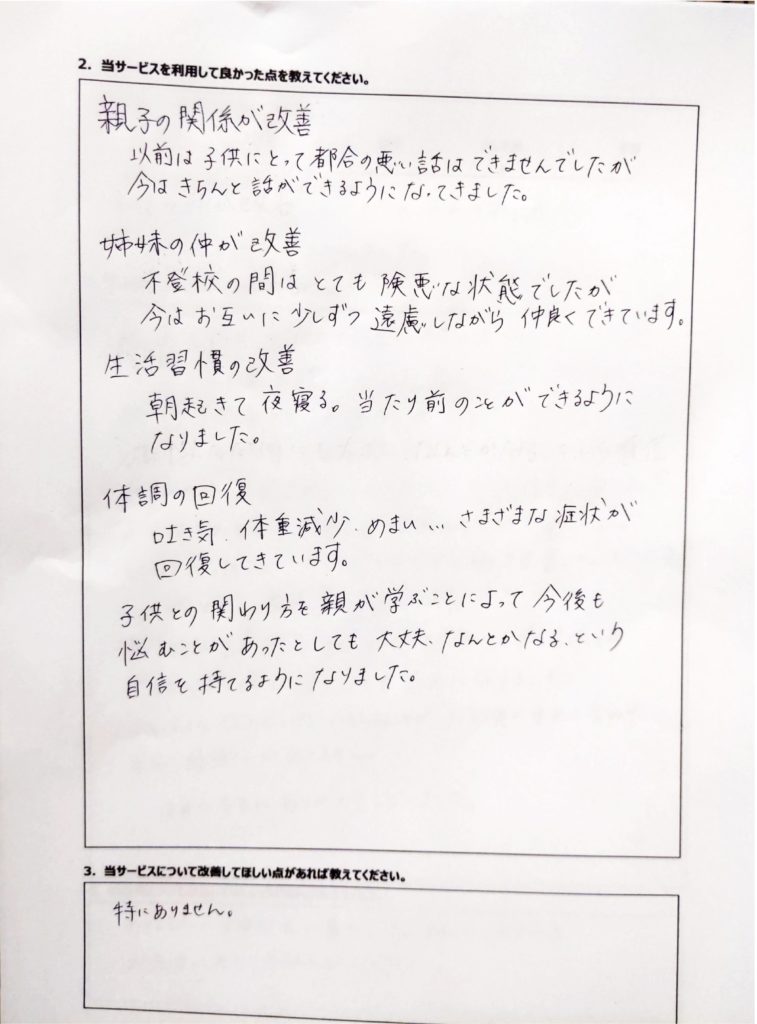 2. 当サービスを利用して良かった点を教えてください。
親子の関係が改善
以前は子供にとって都合の悪い話はできませんでしたが
今はきちんと話ができるようになってきました。
姉妹の仲が改善
不登校の間はとても険悪な状態でしたが
今はお互いに少しずつ遠慮しながら仲良くできています。
生活習慣の改善
朝起きて夜寝る。当たり前のことができるように
なりました。
体調の回復
吐き気、体重減少、めまい…さまざまな症状が
回復してきています。
子供との関わり方を親が学ぶことによって今後も
悩むことがあったとしても大丈夫、なんとかなる、という
自信を持てるようになりました。
3. 当サービスについて改善してほしい点があれば教えてください。
特にありません。